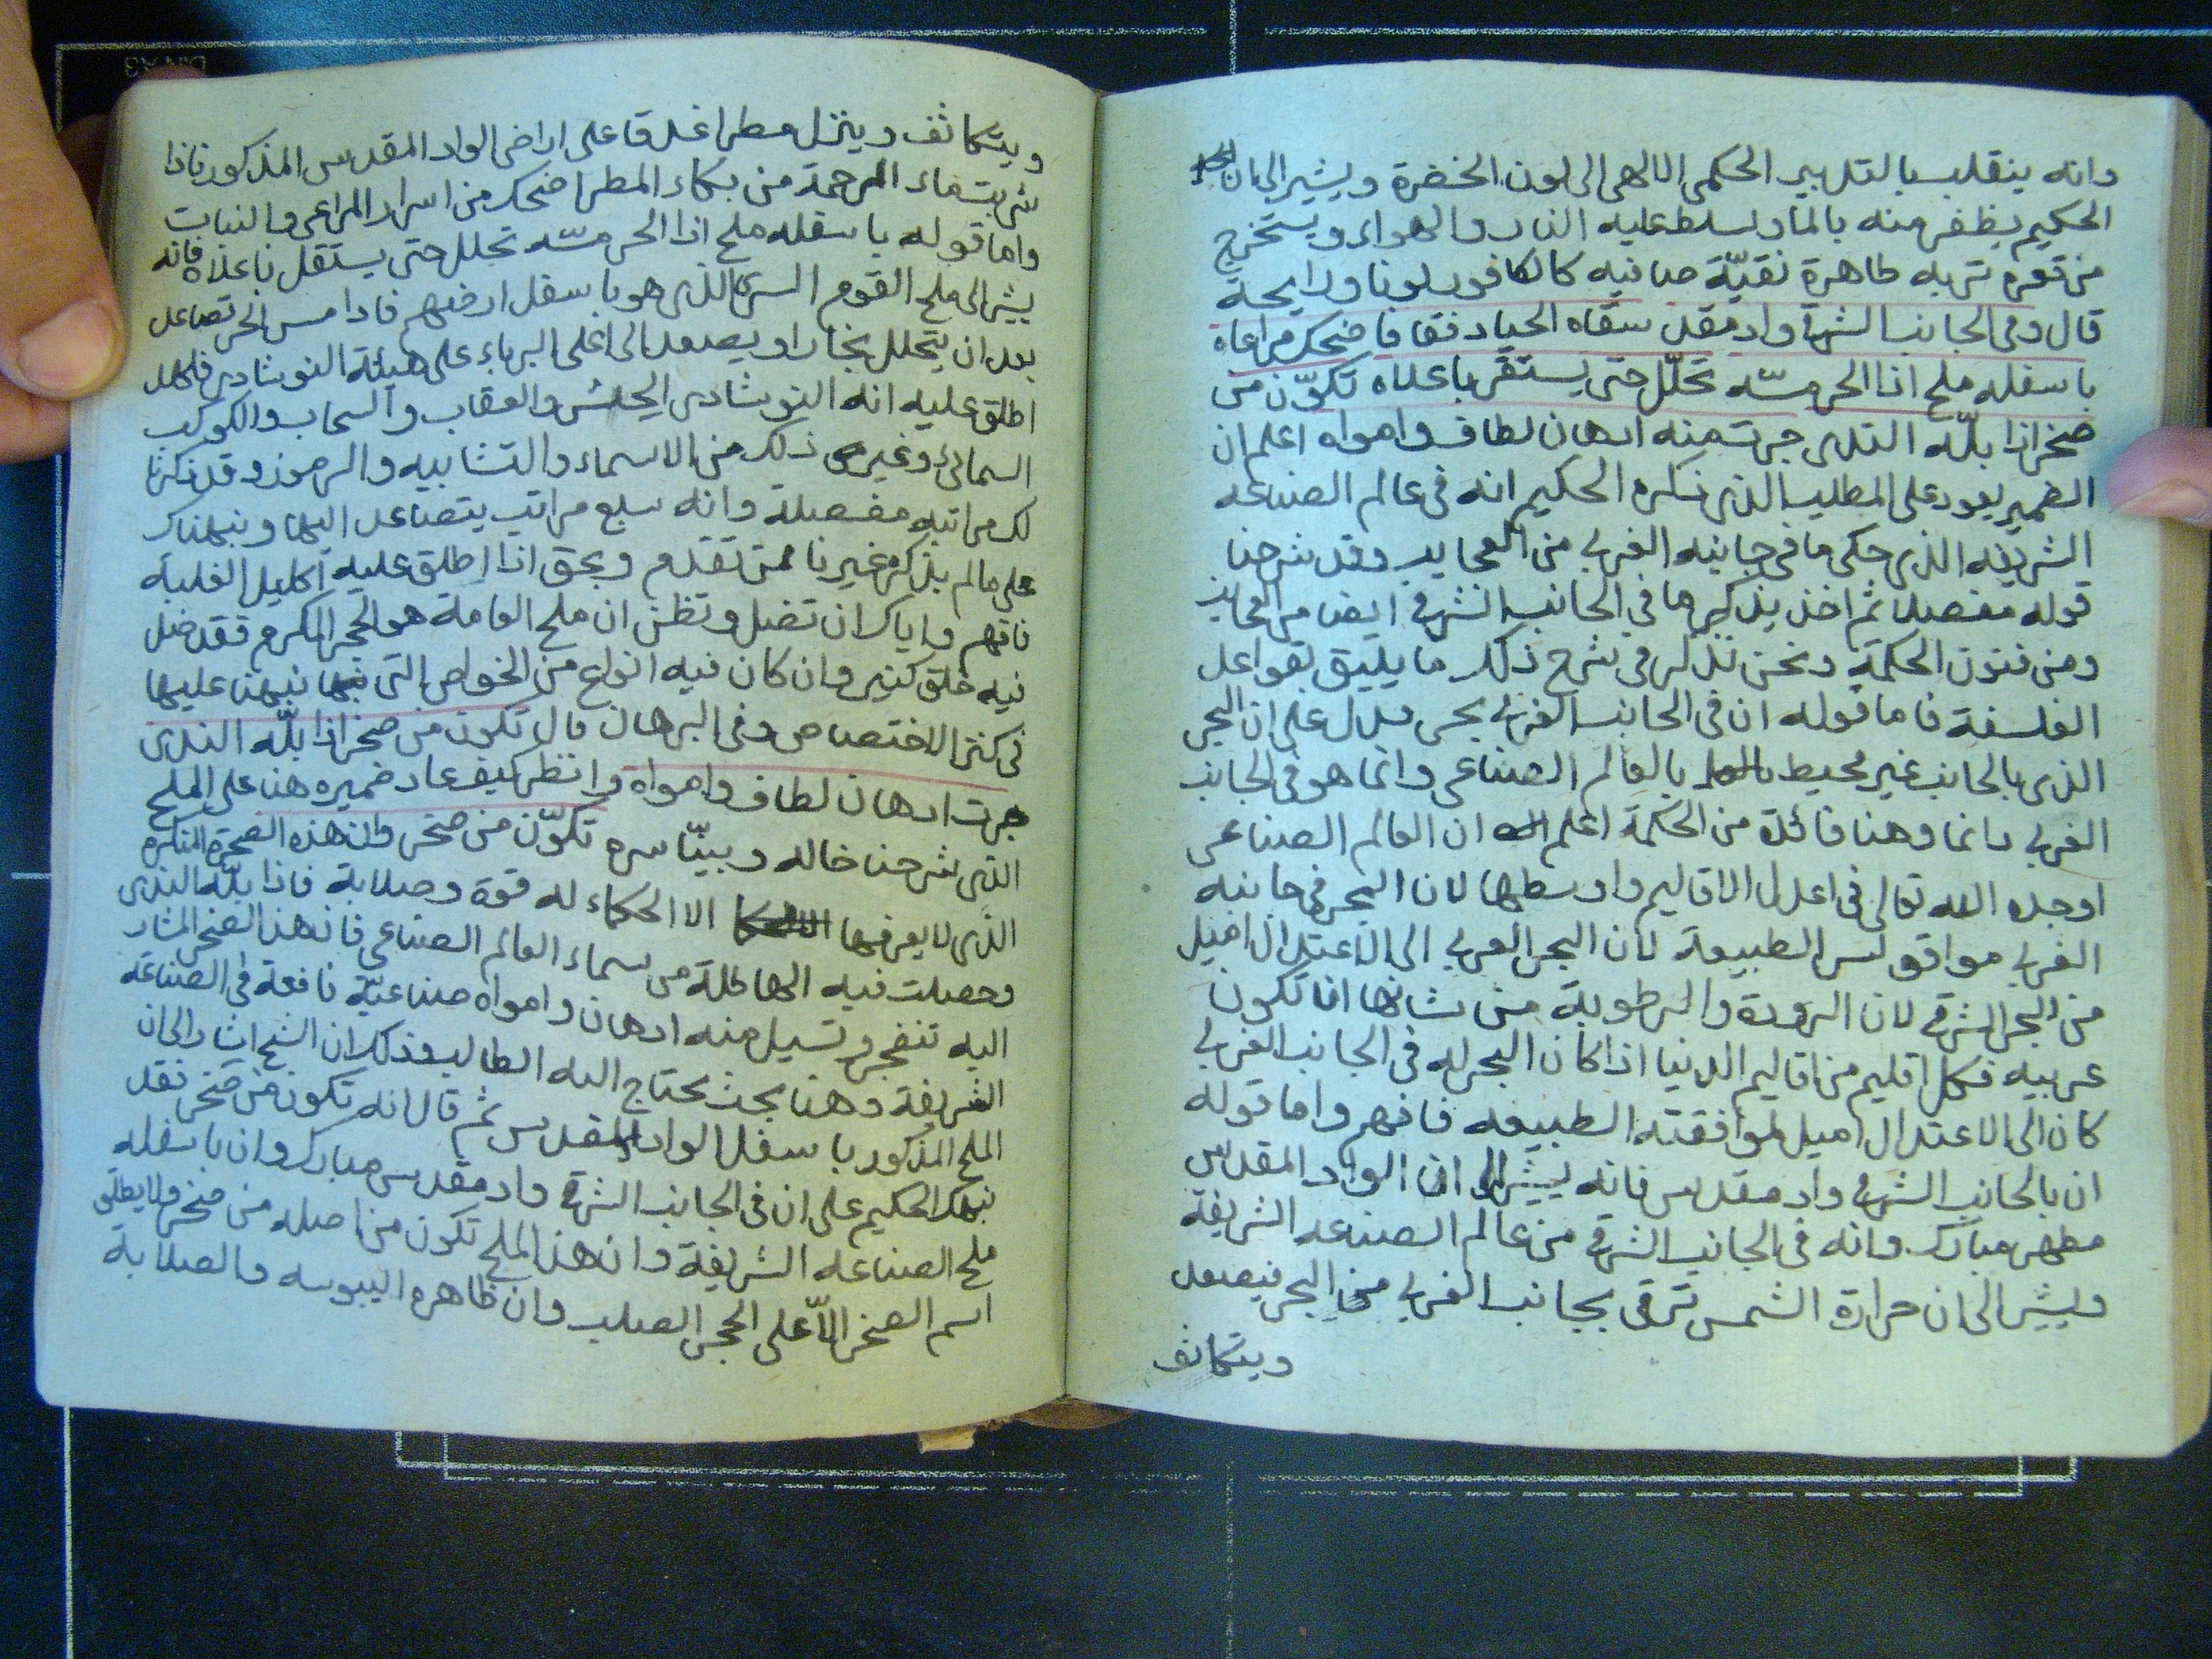 وانه ينقلب بالتدبير الحكمي الالهي الى لون الخضرة ويشير الى ان
الحكيم يظفر منه بالماء ويسلط عليه النار والهواء ويستخرج
من قعره تربه طاهرة نقيّة صافيه كالكافور لونا ورايحة
قال وفي الجانب الشرقي واد مقدس سقاه الحيا دفقا فاضحك مرعاه
باسفله ملح اذا الحر مسّه تحلّل حتى يستقر باعلاه تكوّن من
صخر اذا بلّه الندى جرت منه ادهان لطاف وامواه اعلم ان
الضمير يعود على المطلب الذي ذكره الحكيم انه في عالم الصناعه
الشريفه الذي حكى ما في جانبه الغربي من العجايب وقد شرحنا
قوله مفصلا ثم اخذ يذكر ما في الجانب الشرقي ايضا من العجايب
ومن فنون الحكمة ونحن نذكر في شرح ذلك ما يليق بقواعد
الفلسفة فاما قوله ان في الجانب الغربي بحر يدل على ان البحر
الذي بالجانب غير محيط بالعالم الصناعي وانما هو في الجانب
الغربي دائما وهنا فائدة من الحكمة اعلم ان العالم الصناعي
اوجده الله تعالى في اعدل الاقاليم واوسطها لان البحر في جانبه
الغربي موافق لسر الطبيعة لان البحر الغربي الى الاعتدال اميل
من البحر الشرقي لان البرودة والرطوبة من شانها ان تكون
غربيه فكل اقليم من اقاليم الدنيا اذا كان البحر له في الجانب الغربي
كان الى الاعتدال اميل لموافقته الطبيعه فافهم واما قوله
ان بالجانب الشرقي واد مقدس فانه يشير الى ان الواد المقدس
مطهر مبارك وانه في الجانب الشرقي من عالم الصناعه الشريفة
ويشير الى ان حرارة الشمس ترقى بجانب الغربي من البحر فيصعد
ويتكاثف
ويتكاثف وينزل مطرا غدقا على اراضي الواد المقدس المذكور فاذا
شربت ماء الرحمة من بكاء المطر اضحك من اسرار المراعي والنبات
واما قوله باسفله ملح اذا الحر مسّه تحلل حتى يستقل باعلاه فانه
يشير الى ملح القوم السري الذي هو باسفل ارضهم فاذا مس الحر تصاعد
بعد ان يتحلل بخارا ويصعد الى اعلى البرباء على هيئة النوشادر فلذلك
اطلق عليه انه النوشادر والعقاب والسحاب والكوكب
السمائي وغير ذلك من الاسماء والتشابيه والرموز وقد ذكرنا
لك مراتبه مفصلة وانه سبع مراتب يتصاعد اليها ونبهناك
على مالم يذكره غيرنا ممن تقدم وبحق اذا اطلق عليه اكليل الغلبة
فافهم واياك ان تضل وتظن ان ملح العامة هو الحجر المكرم فقد ضل
فيه خلق كثير وان كان فيه انواع من الخواص التي نبهنا عليها
في كنز الاختصاص وفي البرهان قال تكون من صخر اذا بلّه الندى
جرت ادهان لطاف وامواه وانظر كيف عاد ضميره هنا على الملح
الذي شرحنا حاله وبيّنا سره تكوّن من صخر وان هذه الصخرة المنكره
الذي لا يعرفها الا الحكماء له قوة وصلابة فاذا بلّه الندى
وحصلت فيه الهاطلة من سماء العالم الصناعي فان هذا الصخر المشار
اليه تنفجر وتسيل منه ادهان وامواه صناعيّة نافعة في الصناعة
الشريفة وهنا بحث يحتاج اليه الطالب وذلك ان الشيخ اشار الى ان
الملح المذكور باسفل الواد المقدس ثم قال انه تكون من صخر فقد
نبهك الحكيم على ان في الجانب الشرقي واد مقدس مبارك وان باسفله
ملح الصناعه الشريفة وان هذا الملح تكون من اصله من صخر ولا يطلق
اسم الصخر الاّ على الحجر الصلب وان ظاهره اليبوسه والصلابة